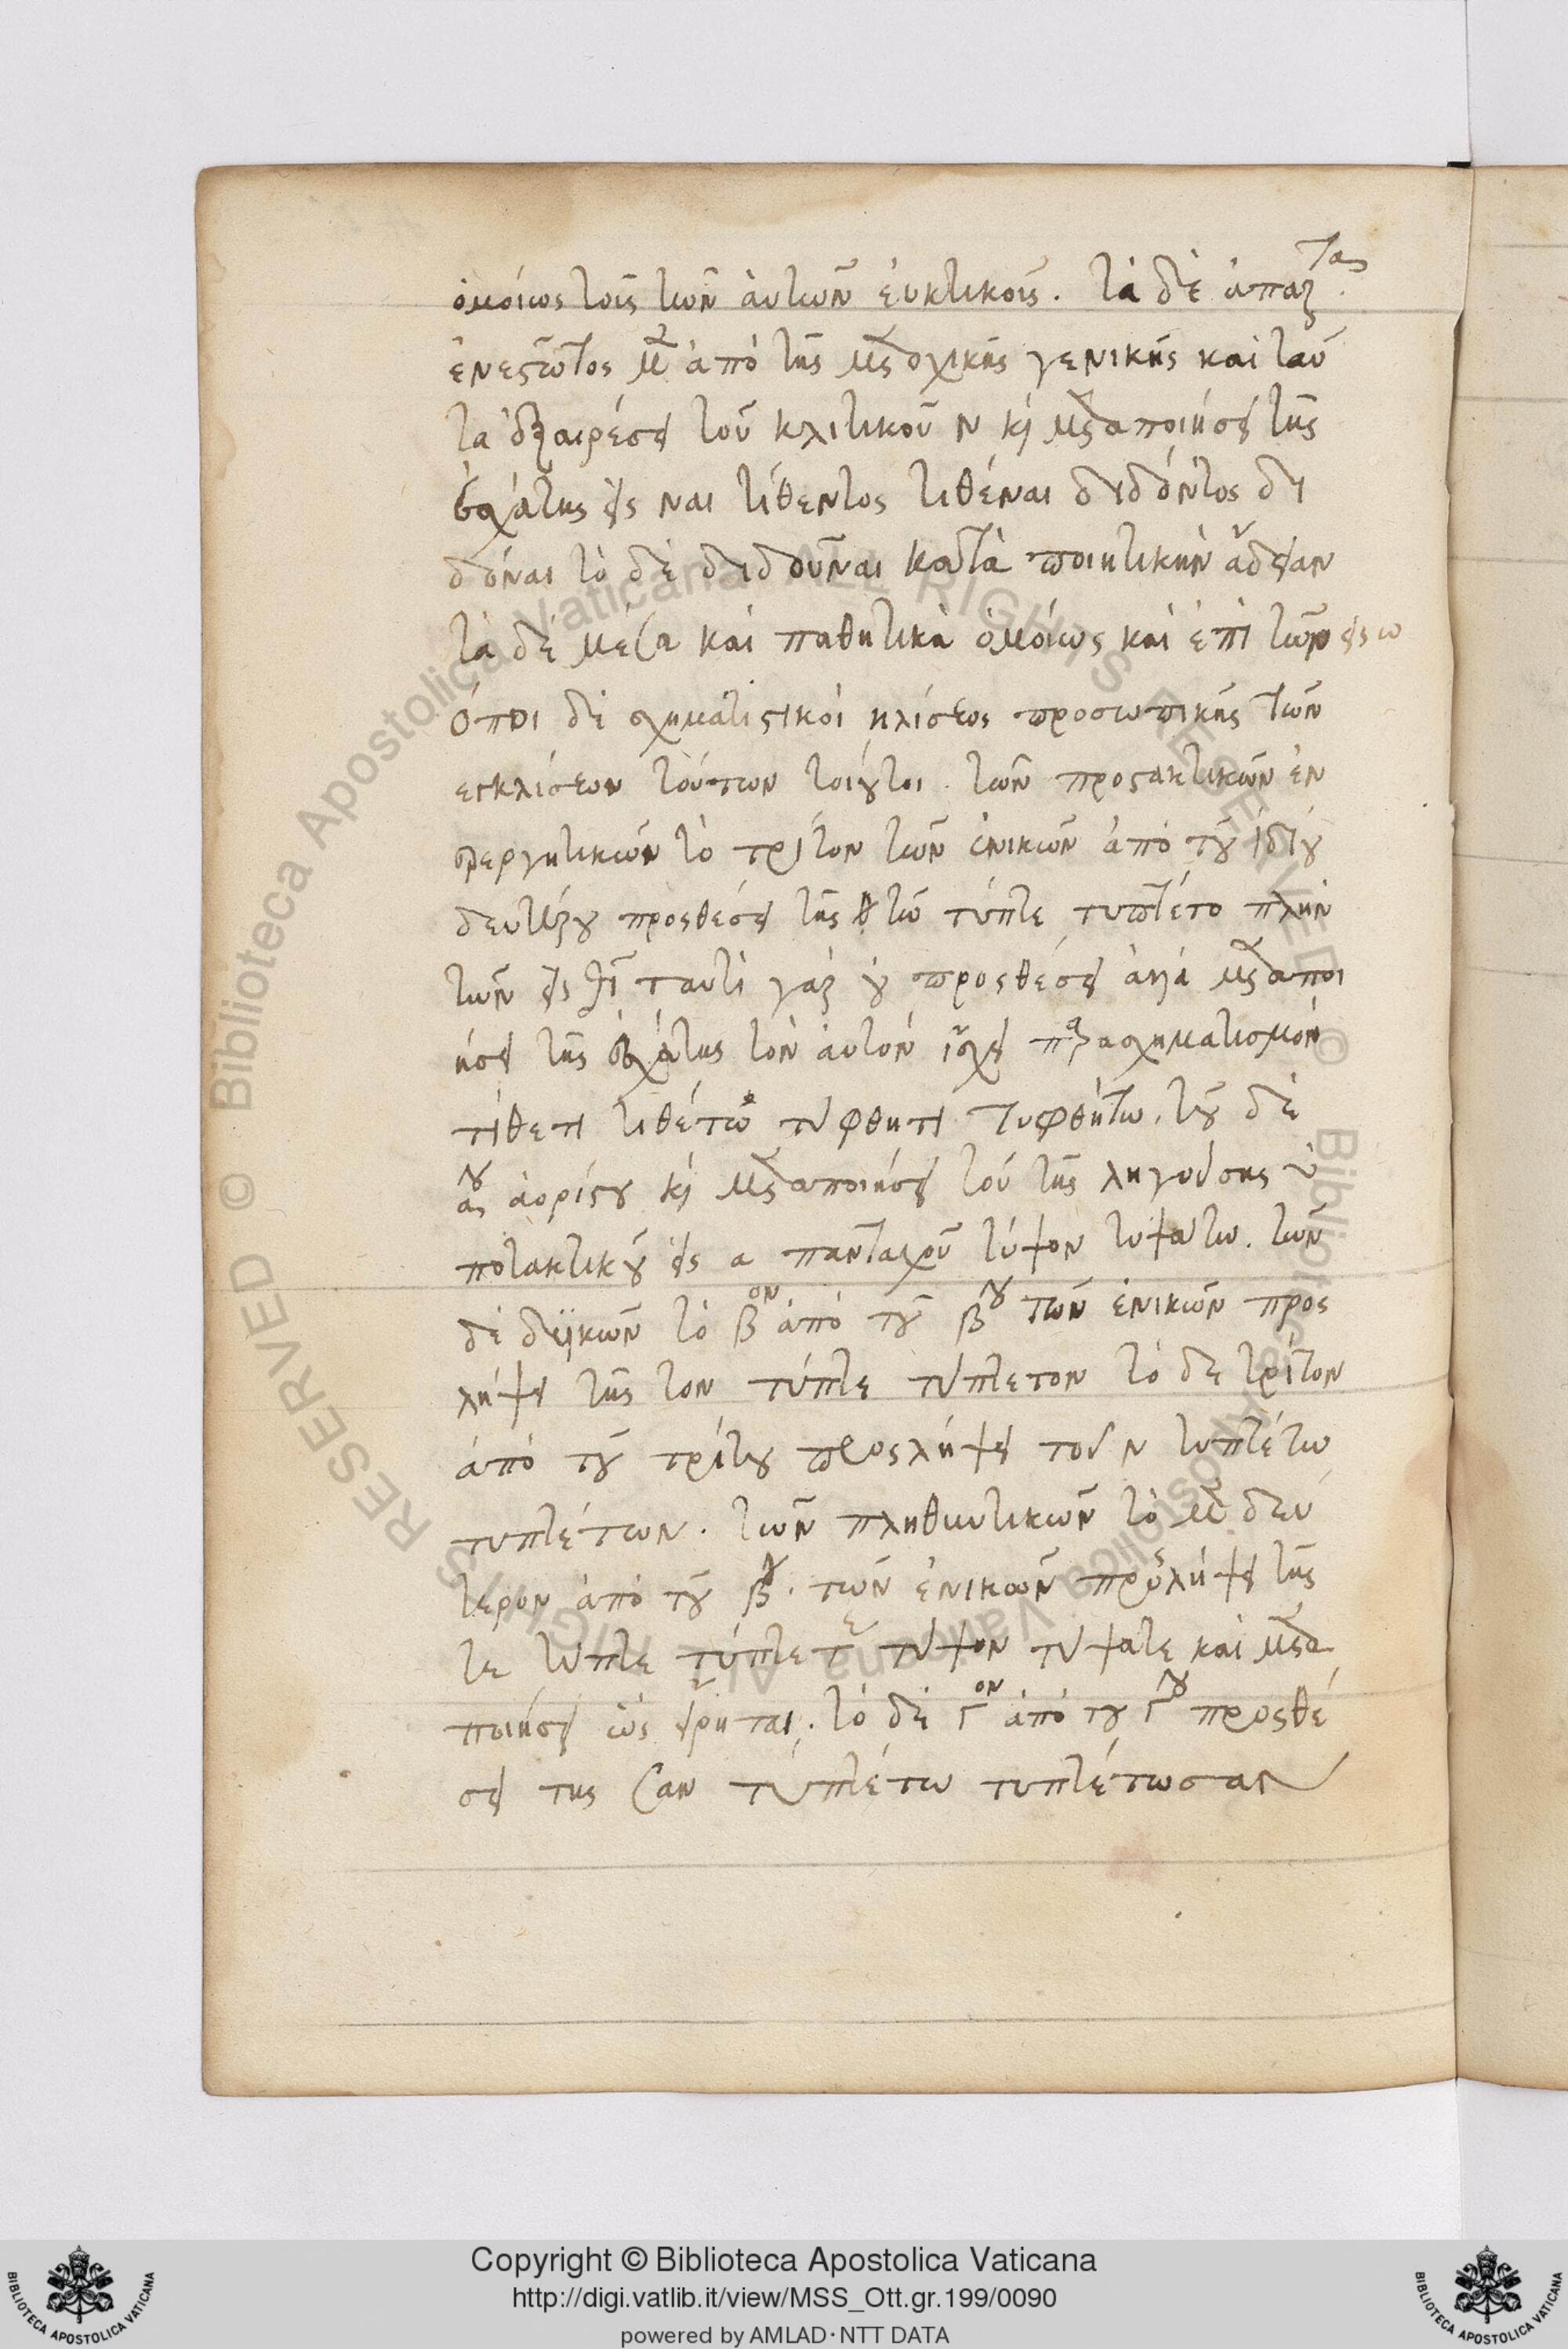 ὁμοίως τοῖς τῶν ἀυτῶν ἐυκτικοῖς. τὰ δὲ ἀπαρ
ἐνεστῶτος μὲν ἀπὸ τῆς μετοχικῆς γενικῆς καὶ ταύ
τα ἐξαιρέσει τοῦ κλιτικοῦ ν κὶ μεταποιήσει τῆς
ἐσχάτης εἰς ναι τίθεντος τιθέναι διδόντος δι
δόναι τὸ δὲ διδοῦναι κατὰ ποιητικὴν ἄδειαν
τὰ δὲ μέσα καὶ παθητικὰ ὁμοίως καὶ ἐπὶ τῶν εἰς ω
ὅποι δὲ σχηματιστικοὶ κλίσεος προσωπικῆς τῶν
εγκλίσεων τούτων τοιοῦτοι. τῶν προστακτικῶν ἐν
εργητικῶν τὸ τρίτον τῶν ἑνικῶν ἀπὸ τοῦ ἰδίου
δευτέρου προσθέσει τῆς τω τύπτε τυπτέτο πλὴν
τῶν εἰς θι ταυτὶ γὰρ οὐ προσθέσει ἀλλὰ μεταποι
ήσει τῆς ἐσχάτης τὸν ἀυτὸν ἴσχει παρασχηματισμὸν
τίθετι τιθέτω τύφθητι τυφθήτω. τοῦ δὲ
αου ἀορίστου κὶ μεταποιήσει τοῦ τῆς ληγούσης ὑ
ποτακτικοῦ εἰς α πανταχοῦ τύψον τυψάτω. τῶν
δὲ δυϊκῶν τὸ βον ἀπὸ τοῦ βου τῶν ἑνικῶν προς
λήψει τῆς τον τύπτε τύπτετον τὸ δε τρίτον
ἀπὸ τοῦ τρίτου προςλήψει τοῦ ν τυπτέτω
τυπτέτων. τῶν πληθυντικῶν τὸ μὲν δεύ
τερον ἀπὸ τοῦ βου. τῶν ἑνικῶν προσλήψει τῆς
τε τύπτε τύπτετε τύψον τύψατε καὶ μετα
ποιήσει ὡς εἴρηται. τὸ δὲ γον ἀπὸ του γου προσθέ
σει της σαν τυπτέτω τυπτέτωσαν
Copyright © Biblioteca Apostolica Vaticana
http://digi.vatlib.it/view/MSS_Ott.gr.199/0090
powered by AMLAD·NTT DATA